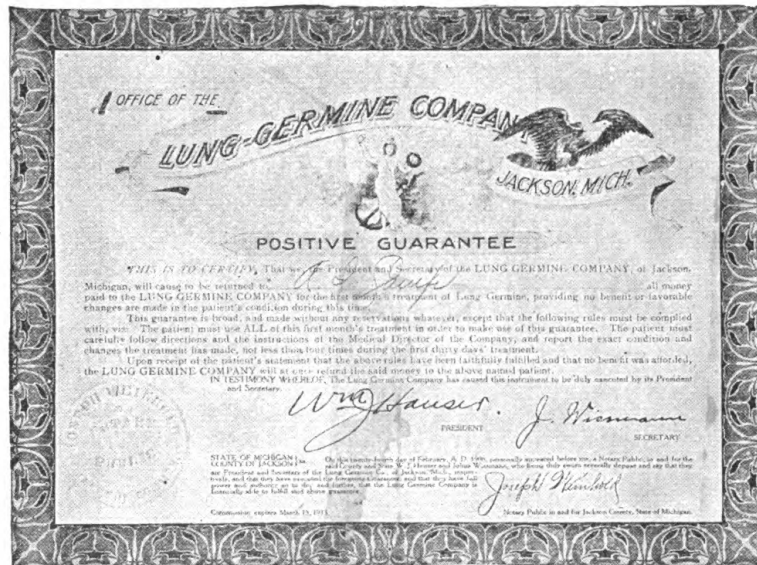 OFFICE OF THE
LUNG-GERMINE COMPANY
JACKSON, MICH.
POSITIVE GUARANTEE
THIS IS TO CERTIFY, That we, the President and Secretary of the LUNG GERMINE COMPANY, of Jackson,
Michigan, will cause to be returned to all money
paid to the LUNG GERMINE COMPANY for the first month's treatment of Lung Germine, providing no benefit or favorable
changes are made in the patient's condition during this time.
This guarantee is broad, and made without any reservations whatever, except that the following rules must be complied
with, viz: The patient must use ALL of this first month's treatment in order to make use of this guarantee. The patient must
carefully follow directions and the instructions of the Medical Director of the Company, and report the exact condition and
changes the treatment has made, not less than four times during the first thirty days' treatment.
Upon receipt of the patient's statement that the above rules have been faithfully fulfilled and that no benefit was afforded,
the LUNG GERMINE COMPANY will at once refund the said money to the above named patient.
IN TESTIMONY WHEREOF, The Lung Germine Company has caused this instrument to be duly executed by its President
and Secretary.
Wm J Hauser.
PRESIDENT
J. Wiesmann
SECRETARY
STATE OF MICHIGAN
COUNTY OF JACKSON ss
On this day of February, A. D. personally appeared before me, a Notary Public, in and for the
said County and State W. J. Hauser and Julius Wiesmann, who being duly sworn severally depose and say that they
are President and Secretary of the Lung Germine Co., of Jackson, Mich., respec-
tively, and that they have executed the foregoing guarantee, and that they have full
power and authority so to do, and further, that the Lung Germine Company is
financially able to fulfill said above guarantee.
Joseph Weinhold
Commission expires March 15, 1911.
Notary Public in and for Jackson County, State of Michigan.